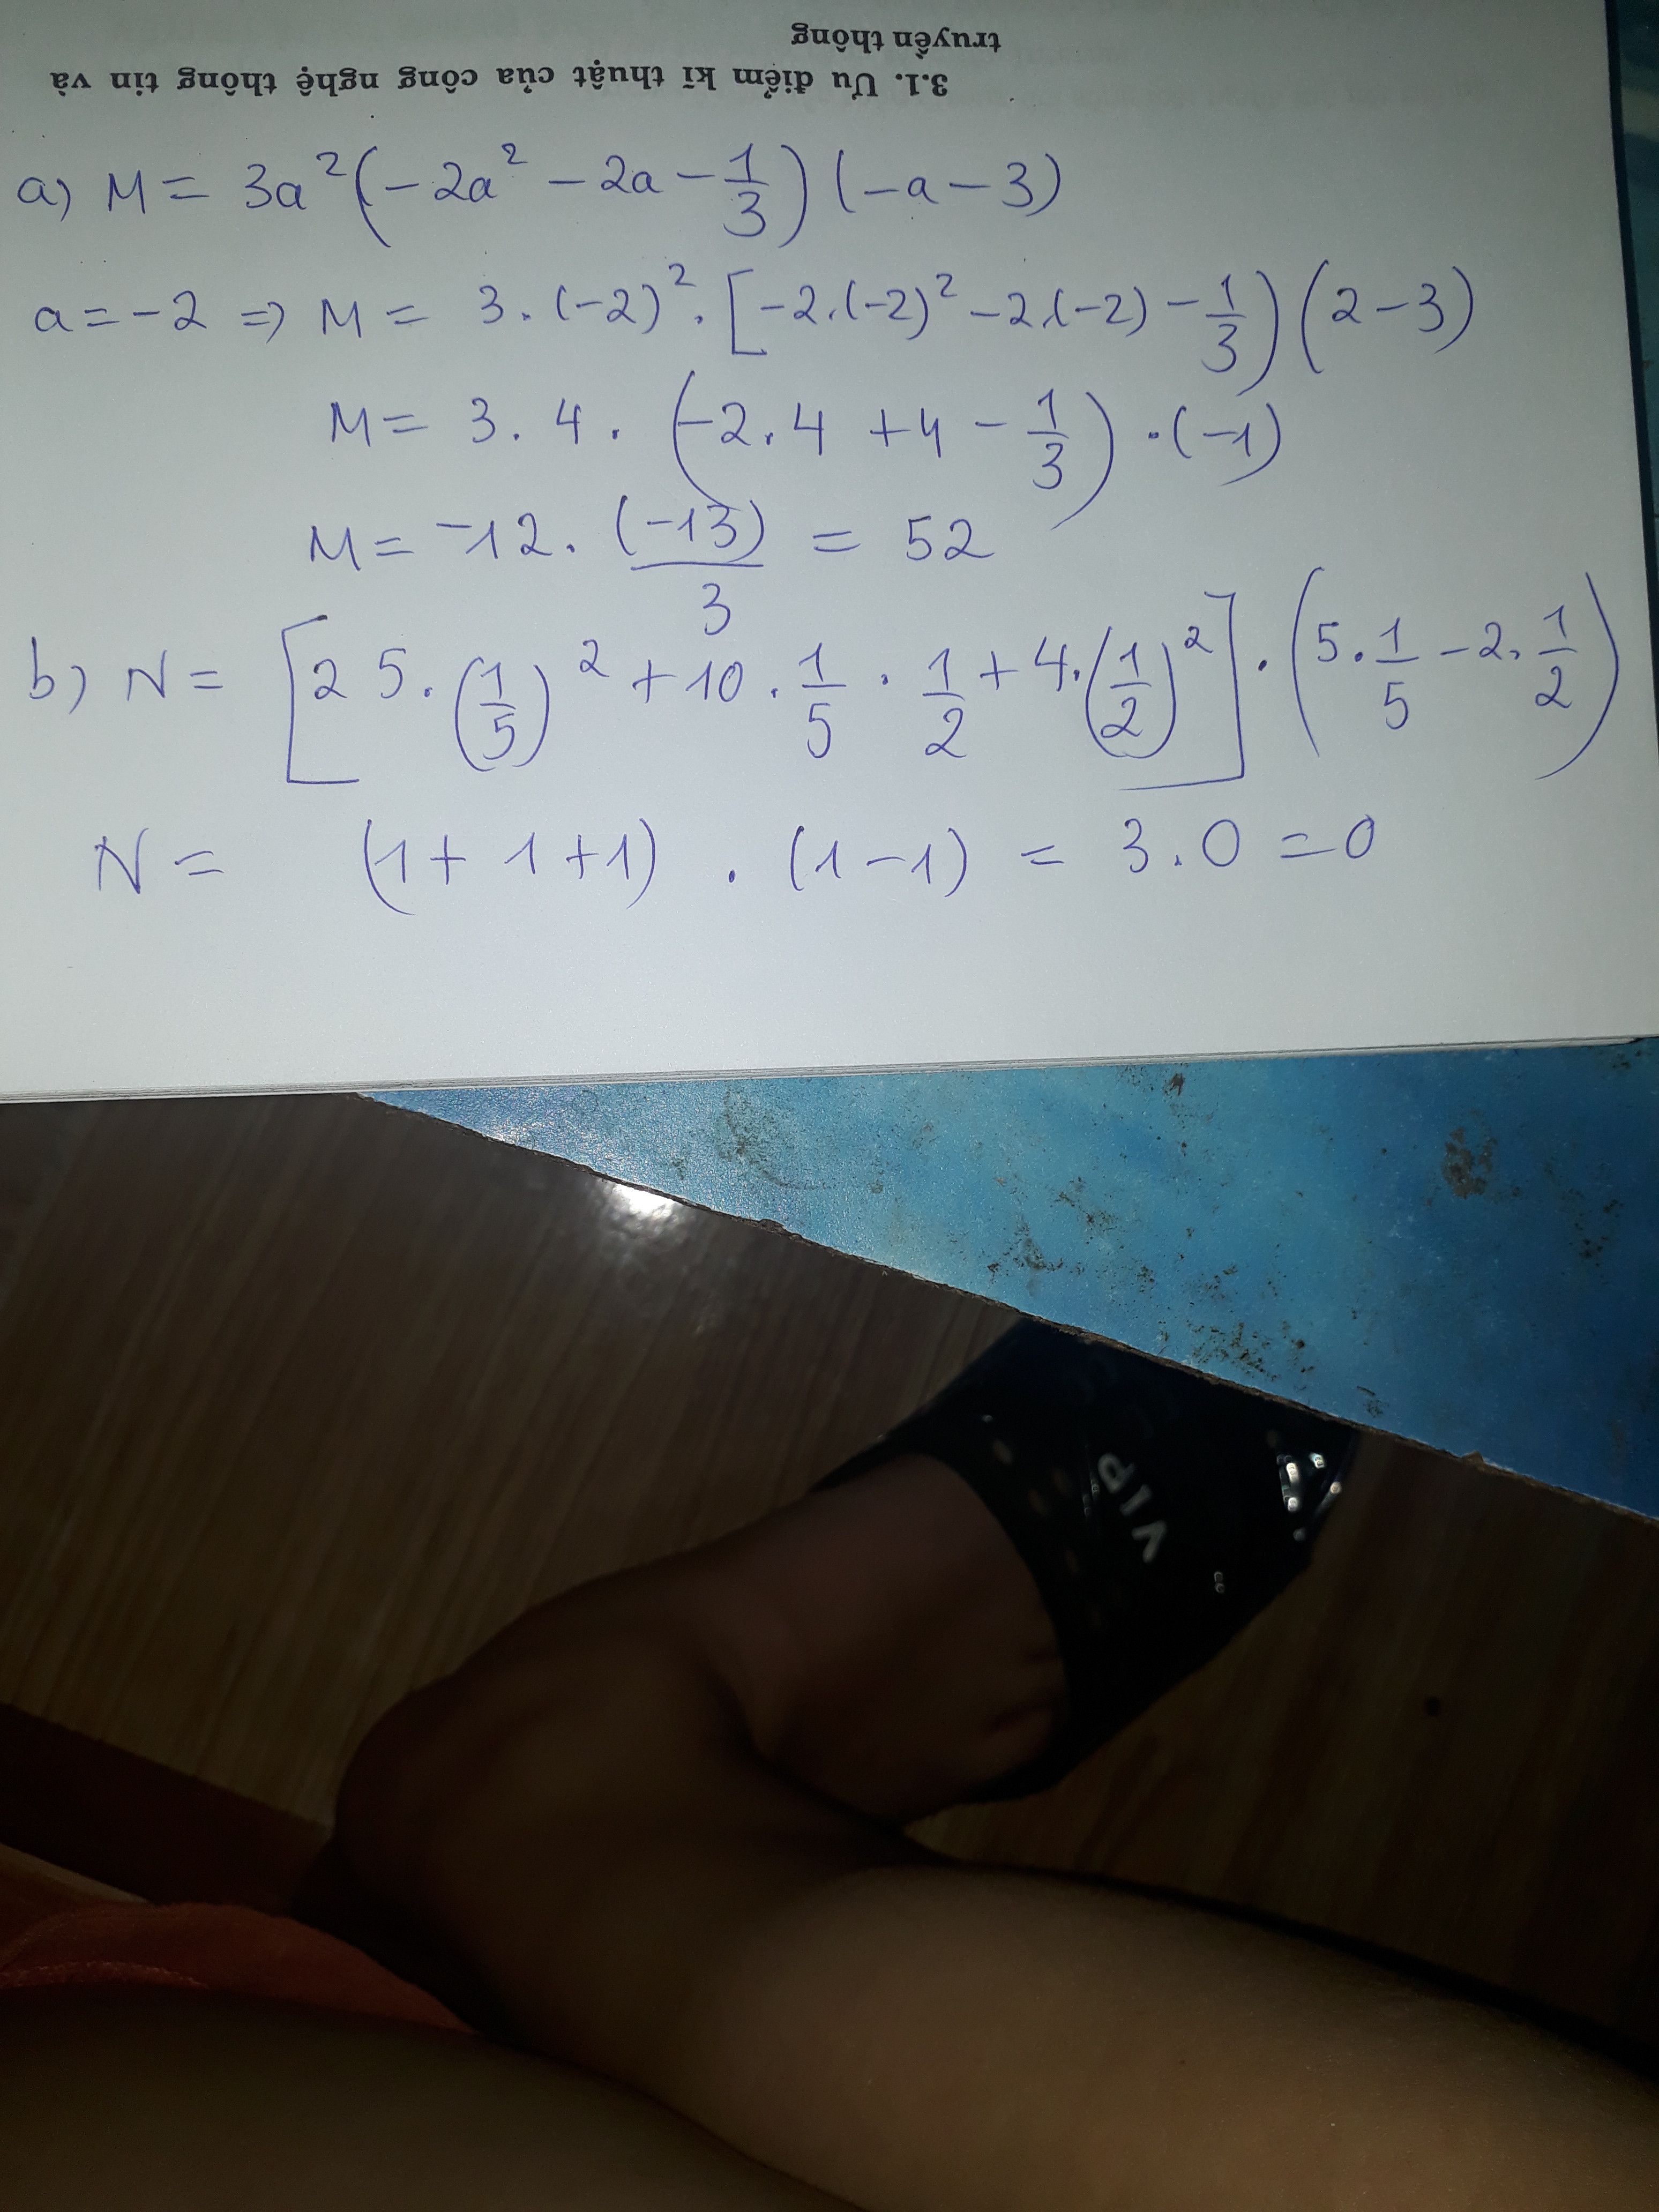 truyền thông
3.1. Ưu điểm kĩ thuật của công nghệ thông tin và
a) M = 3a²(-2a² - 2a - 1/3)(-a - 3)
a = -2 => M = 3.(-2)².[-2.(-2)² - 2.(-2) - 1/3)(2 - 3)
M = 3.4.(-2.4 + 4 - 1/3).(-1)
M = -12.(-13)/3 = 52
b) N = [25.(1/5)² + 10.1/5.1/2 + 4.(1/2)²].(5.1/5 - 2.1/2)
N = (1 + 1 + 1).(1 - 1) = 3.0 = 0
VIP